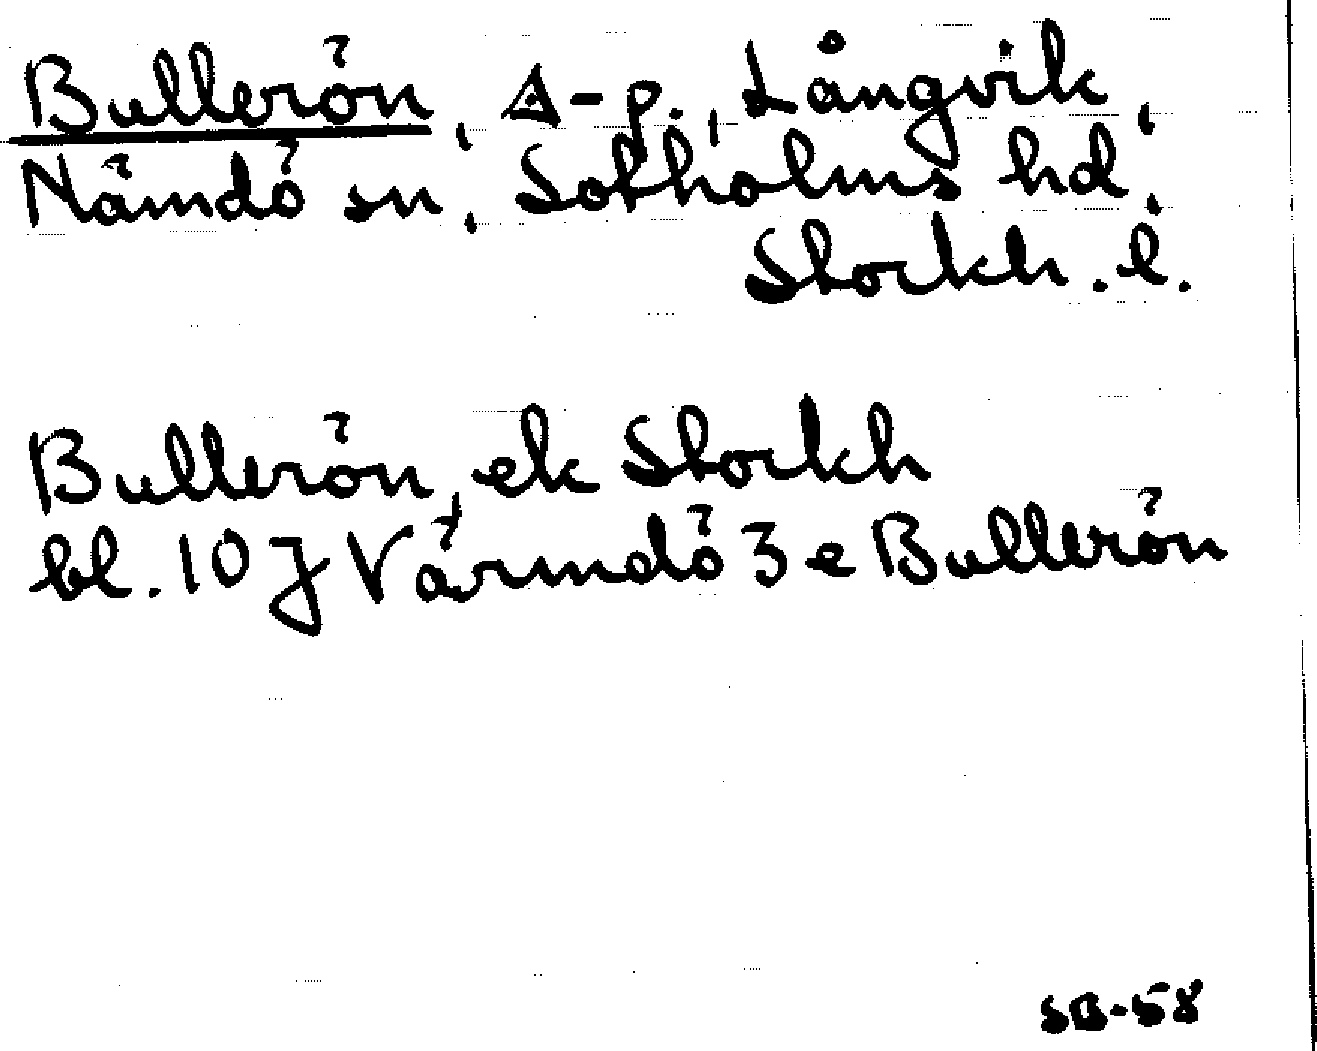 Bullerön, △-p., Långvik,
Nämdö sn, Sotholms hd,
Stockh. l.
Bullerön, ek Stockh
bl. 10J Värmdö 3e Bullerön
SB-58